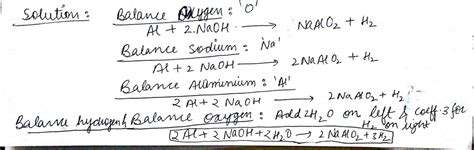 Solution: Balance Oxygen: 'O'
Al + 2.NaOH ⟶ NaAlO2 + H2
Balance Sodium: 'Na'
Al + 2 NaOH ⟶ 2NaAlO2 + H2
Balance Aluminium: 'Al'
2 Al + 2 NaOH ⟶ 2 NaAlO2 + H2
Balance hydrogen & Balance oxygen: Add 2H2O on left & coeff. 3 for
H2 on right
2 Al + 2 NaOH + 2H2O → 2 NaAlO2 + 3H2